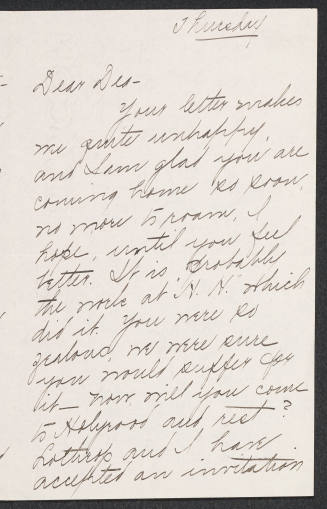 Thursday
Dear Dea-
Your letter makes
me quite unhappy,
and I am glad you are
coming home so soon,
no more to roam, I
hope, until you feel
better. It is probably
the work at "N. N." which
did it. You were so
zealous, we were sure
you would suffer for
it - now will you come
to Holyrood and rest?
Lothrop and I have
accepted an invitation